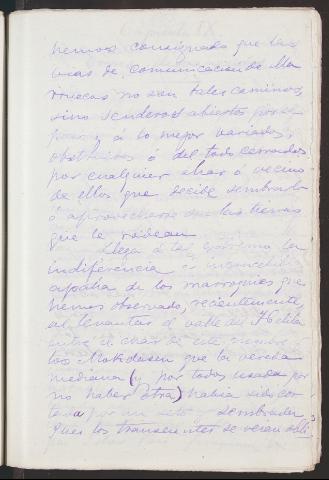 hemos consignado que las
vias de comunicacion de Ma
rruecos no son tales caminos,
sino senderos abiertos por el
paso y á lo mejor variados,
obstruidos ó del todo cerrados
por cualquier ahar ó vecino
de ellos que decide sembrarlo
ó aprovecharse de las tierras
que le rodean.
Llega á tal extremo la
indiferencia é
apatia de los marroquies, que
hemos observado, recientemente,
al levantar el valle del
entre el char de este nombre y
los que la vereda
mediana (y por todos usada por
no haber otra) habia sido cor
tada por un seto y sembrada
pues los transeuntes se veian obli